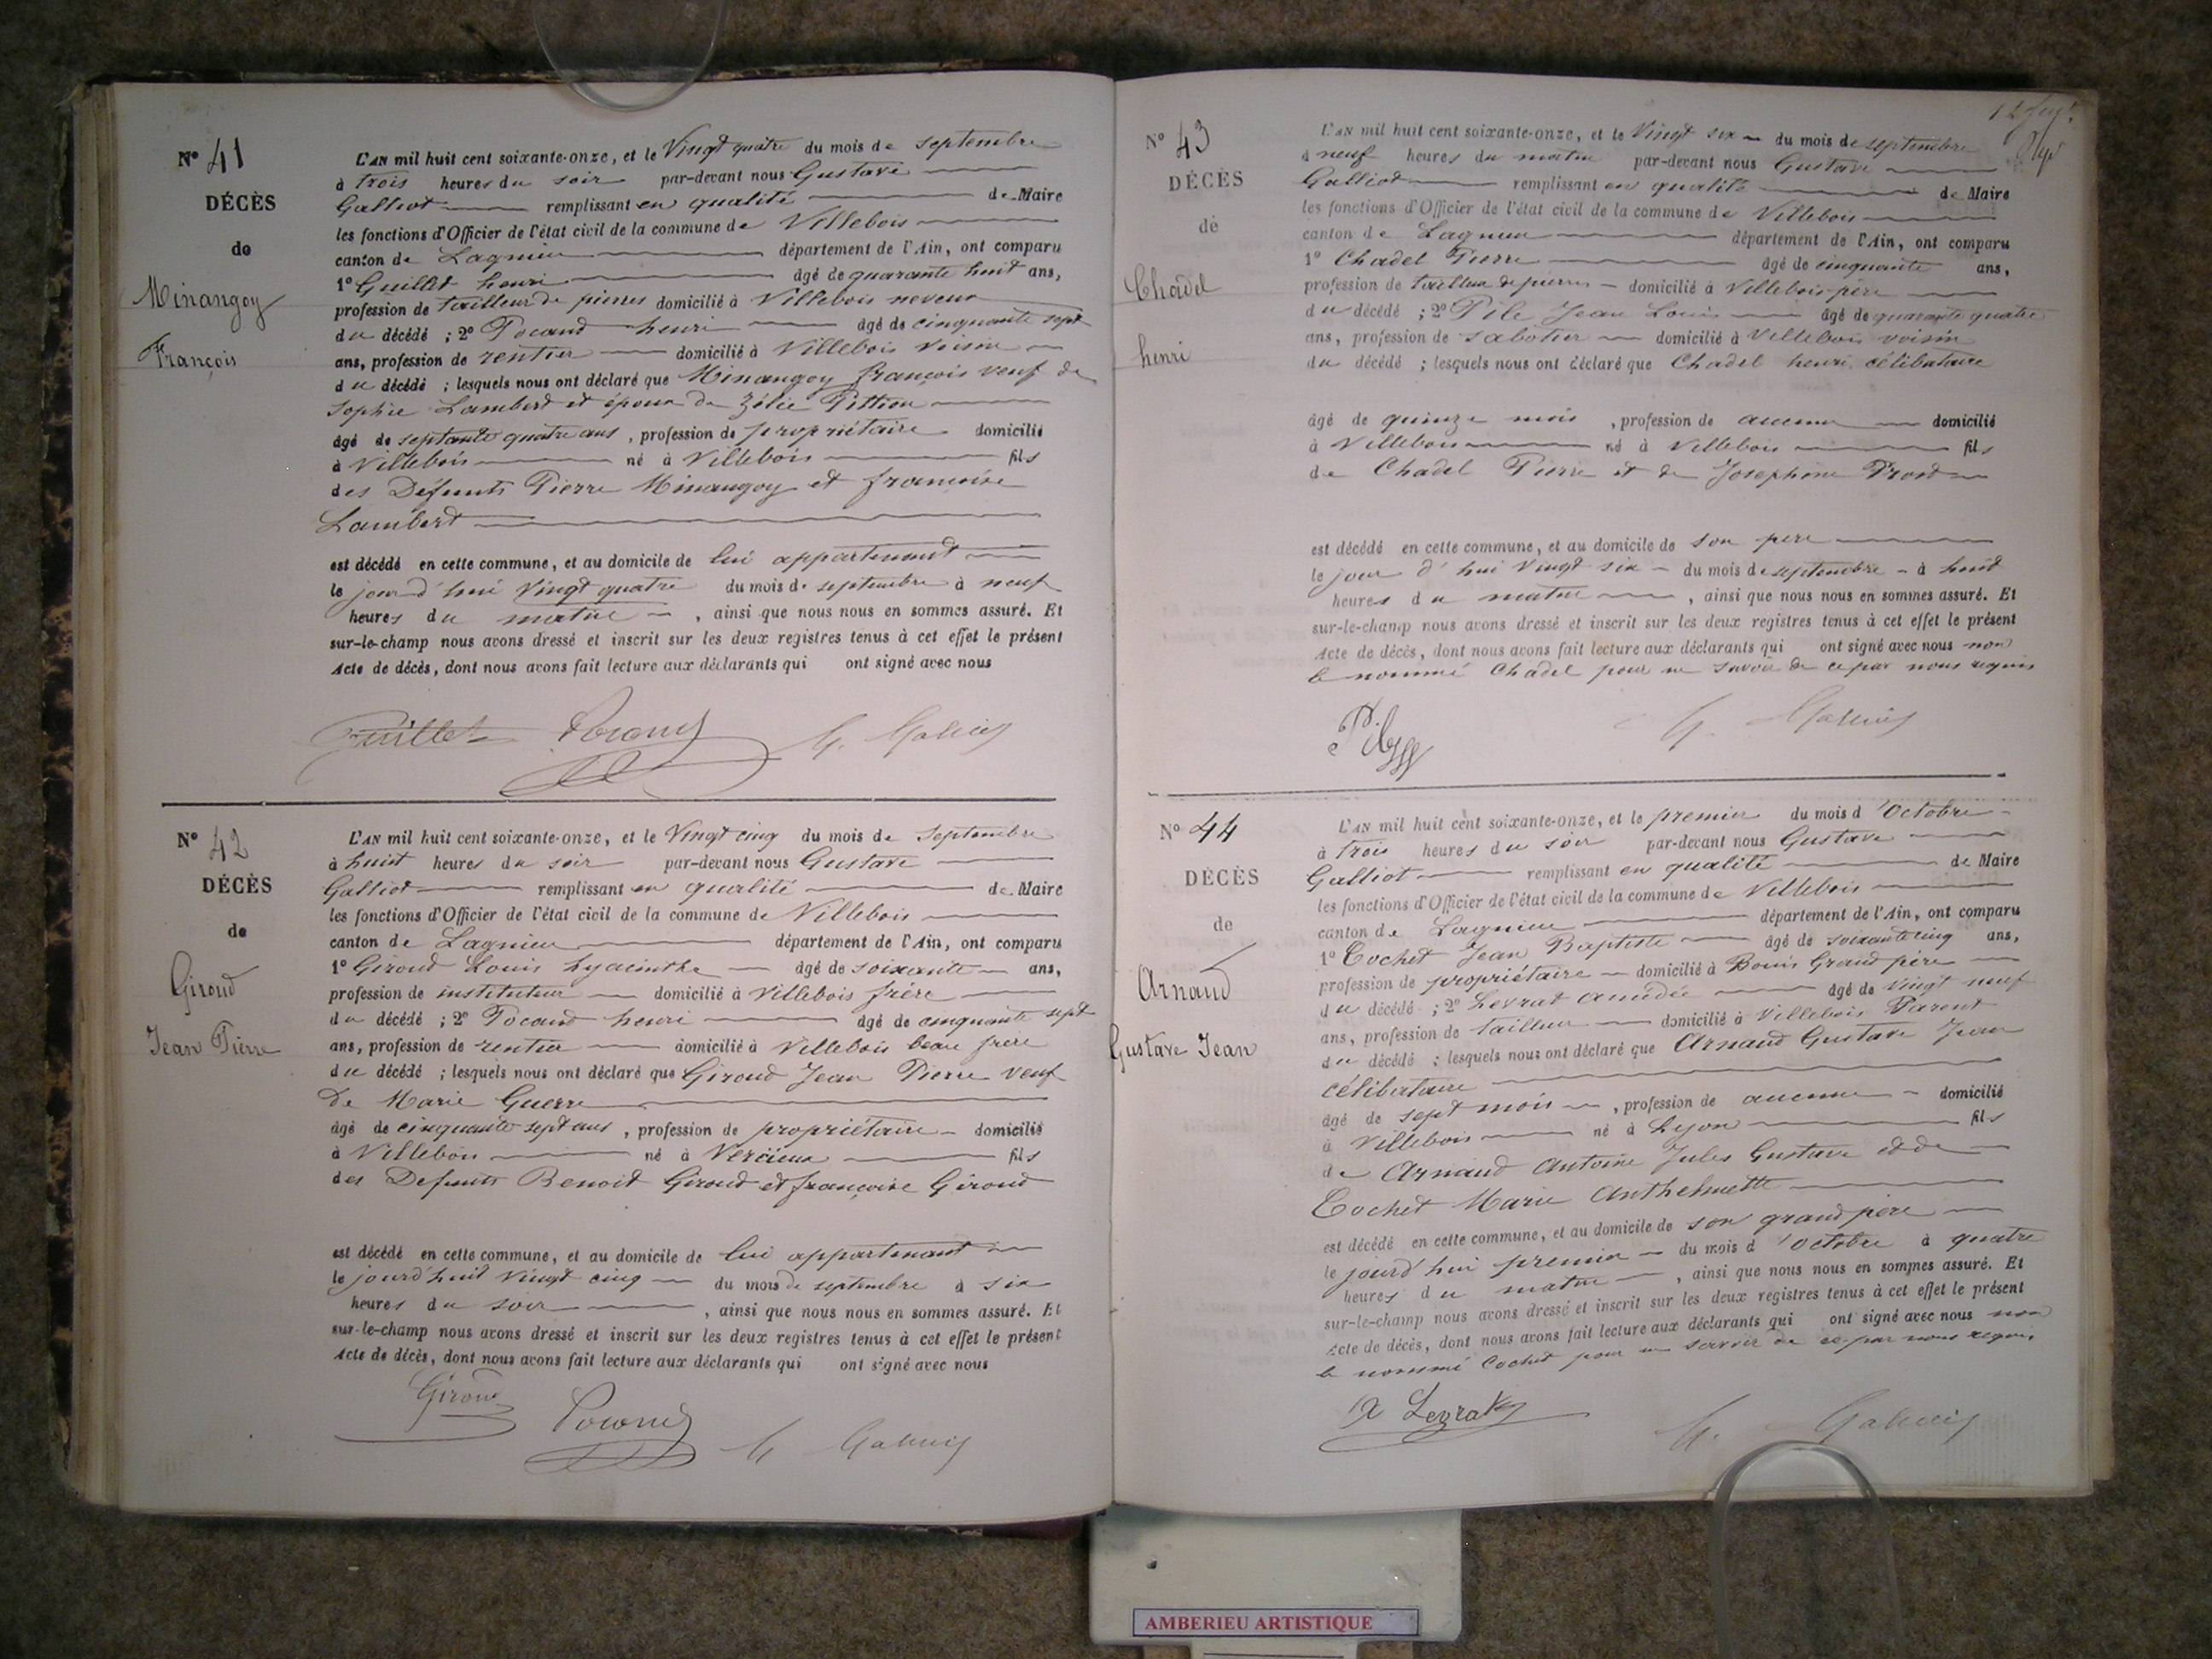 N° 41
DÉCÈS
de
Minangoy
François
L'AN mil huit cent soixante-onze, et le Vingt quatre du mois de septembre
à trois heures du soir par-devant nous Gustave
Galliot remplissant en qualité de Maire
les fonctions d'Officier de l'état civil de la commune de Villebois
canton de Lagnieu département de l'Ain, ont comparu
1° Guillet henri âgé de quarante huit ans,
profession de tailleur de pierres domicilié à Villebois neveux
du décédé ; 2° Pocand henri âgé de cinquante sept
ans, profession de rentier domicilié à Villebois voisin
du décédé ; lesquels nous ont déclaré que Minangoy françois veuf de
Sophie Lambert et époux de Zélie Pittion
âgé de septante quatre ans, profession de propriétaire domicilié
à Villebois né à Villebois fils
des Défunts Pierre Minangoy et françoise
Lambert
est décédé en cette commune, et au domicile de lui appartenant
le jourd'hui Vingt quatre du mois de septembre à neuf
heures du matin, ainsi que nous nous en sommes assuré. Et
sur-le-champ nous avons dressé et inscrit sur les deux registres tenus à cet effet le présent
Acte de décès, dont nous avons fait lecture aux déclarants qui ont signé avec nous
Guillet Pocand G. Galliot
N° 42
DÉCÈS
de
Giroud
Jean Pierre
L'AN mil huit cent soixante-onze, et le Vingt cinq du mois de Septembre
à huit heures du soir par-devant nous Gustave
Galliot remplissant en qualité de Maire
les fonctions d'Officier de l'état civil de la commune de Villebois
canton de Lagnieu département de l'Ain, ont comparu
1° Giroud Louis hyacinthe âgé de soixante ans,
profession de instituteur domicilié à Villebois frère
du décédé ; 2° Pocand henri âgé de cinquante sept
ans, profession de rentier domicilié à Villebois beau frère
du décédé ; lesquels nous ont déclaré que Giroud Jean Pierre veuf
de Marie Guerre
âgé de cinquante sept ans, profession de propriétaire domicilié
à Villebois né à Vercieux fils
des Defunts Benoit Giroud et françoise Giroud
est décédé en cette commune, et au domicile de lui appartenant
le jourd'huit Vingt cinq du mois de septembre à six
heures du soir, ainsi que nous nous en sommes assuré. Et
sur-le-champ nous avons dressé et inscrit sur les deux registres tenus à cet effet le présent
Acte de décès, dont nous avons fait lecture aux déclarants qui ont signé avec nous
Giroud
Pocand G Galliot
N° 43
DÉCÈS
de
Chadel
henri
L'AN mil huit cent soixante-onze, et le Vingt six du mois de septembre
à neuf heures du matin par-devant nous Gustave
Galliot remplissant en qualité de Maire
les fonctions d'Officier de l'état civil de la commune de Villebois
canton de Lagnieu département de l'Ain, ont comparu
1° Chadel Pierre âgé de cinquante ans,
profession de tailleur de pierres domicilié à Villebois père
du décédé ; 2° Pile Jean Louis âgé de quarante quatre
ans, profession de sabotier domicilié à Villebois voisin
du décédé ; lesquels nous ont déclaré que Chadel henri célibataire
âgé de quinze mois, profession de aucune domicilié
à Villebois né à Villebois fils
de Chadel Pierre et de Josephine Prost
est décédé en cette commune, et au domicile de son père
le jour d'hui Vingt six du mois de septembre à huit
heures du matin, ainsi que nous nous en sommes assuré. Et
sur-le-champ nous avons dressé et inscrit sur les deux registres tenus à cet effet le présent
Acte de décès, dont nous avons fait lecture aux déclarants qui ont signé avec nous non
le nommé Chadel pour ne savoir de ce par nous requis
Pile G. Galliot
N° 44
DÉCÈS
de
Arnaud
Gustave Jean
L'AN mil huit cent soixante-onze, et le premier du mois d'Octobre
à trois heures du soir par-devant nous Gustave
Galliot remplissant en qualité de Maire
les fonctions d'Officier de l'état civil de la commune de Villebois
canton de Lagnieu département de l'Ain, ont comparu
1° Cochet Jean Baptiste âgé de soixante cinq ans,
profession de propriétaire domicilié à Bouis Grand père
du décédé ; 2° Levrat amédée âgé de vingt neuf
ans, profession de tailleur domicilié à Villebois Parent
du décédé ; lesquels nous ont déclaré que Arnaud Gustave Jean
célibataire
âgé de sept mois, profession de aucune domicilié
à Villebois né à Lyon fils
de Arnaud Antoine Jules Gustave et de
Cochet Marie Anthelmette
est décédé en cette commune, et au domicile de son grand père
le jourd'hui premier du mois d'Octobre à quatre
heures du matin, ainsi que nous nous en sommes assuré. Et
sur-le-champ nous avons dressé et inscrit sur les deux registres tenus à cet effet le présent
Acte de décès, dont nous avons fait lecture aux déclarants qui ont signé avec nous non
le nommé Cochet pour ne savoir de ce par nous requis
A Levrat G. Galliot
AMBERIEU ARTISTIQUE